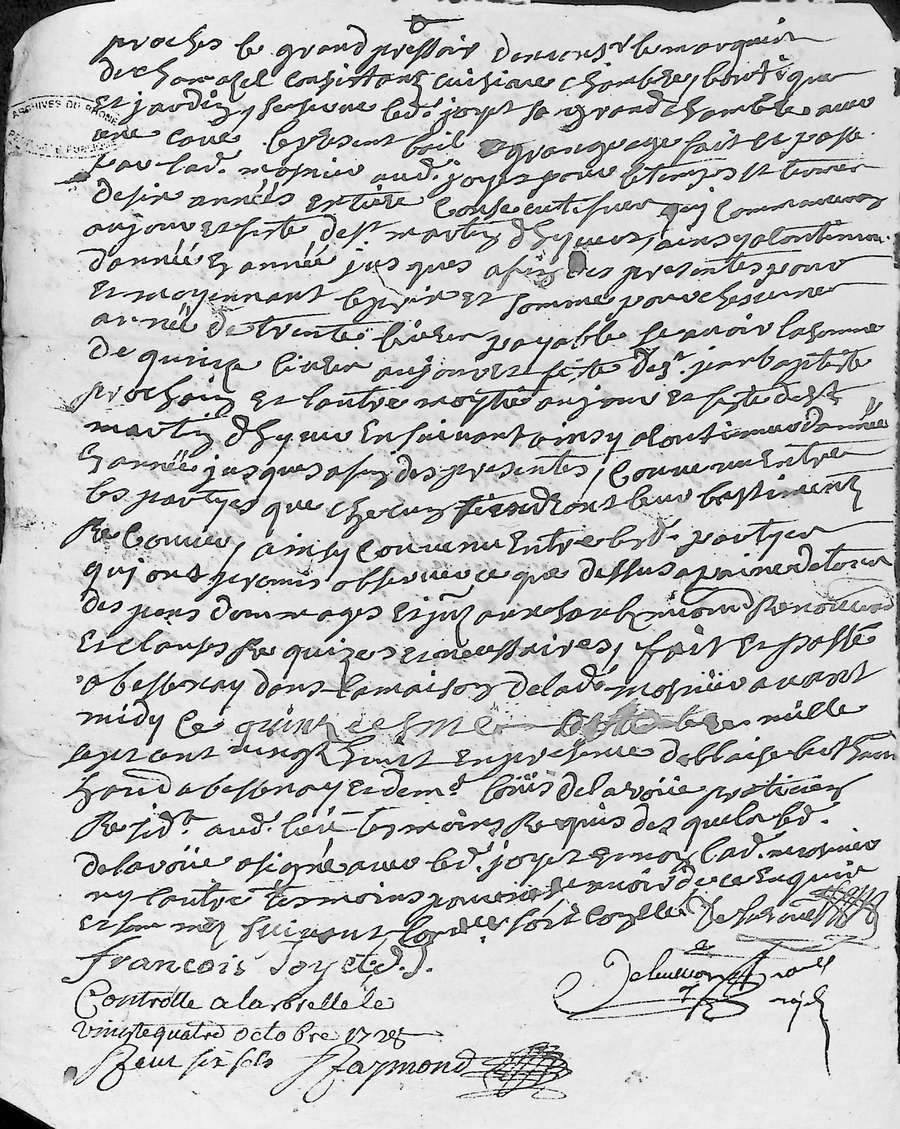 proches le grand pressoir de monsr le marquis
de chamosel consistant cuisine chambre, boutique
et jardin, se reserve led. joyet la grand chambre avec
une cave le present bail grangeage fait et passé
par lad. mosnier aud. joyet pour le temps et terme
de six années entiere consecutifves qui commencera
au jour et feste de st martin d'hyvert, ainsy a continuer
d'année en année jusques a fin des presentes pour
et moyennant le prix et somme pour chescune
année de trente livres payable scavoir la somme
de quinze livres au jour et feste de st. jean baptiste
prochain et l'autre moytié au jour et feste de st
martin d'hyver en suivant ainsy a continuer d'année
en année jusques a fin des presentes, convenu entre
les partyes que chescun tiendront leur bastiment
Recouver, ainsy convenu entre lesd. partyes
qui ont promis observer ce que dessus a paine de tous
des pens dommages et
et clauses Requizes et necessaires, fait et passé
a bessenay dans la maison de la de mosnier avant
midy le quinziesme octobre mille
sept cent vingt huit en presence de blaise
a bessenay et de mr louis delavoüe praticien
Residt. aud. lieu tesmoins Requis des quels led.
delavoüe a signé avec led. joyet et non lad. mosnier
ny l'autre tesmoins pour ne scavoir de ce enquis
et sommez suivant
françois Joyet
Controllé a larbrelle le
vingte quatre octobre 1728
Receu six sols Raymond